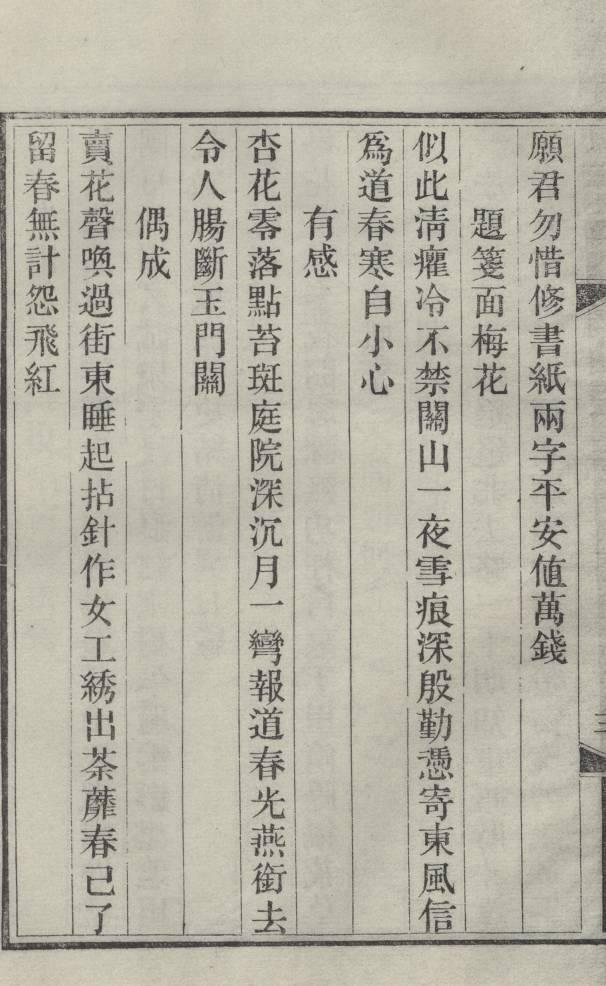 願君勿惜修書紙兩字平安値萬錢
題箋面梅花
似此淸癯冷不禁關山一夜雪痕深殷勤憑寄東風信
爲道春寒自小心
有感
杏花零落點苔斑庭院深沉月一彎報道春光燕銜去
令人腸斷玉門關
偶成
賣花聲喚過街東睡起拈針作女工綉出荼蘼春已了
留春無計怨飛紅